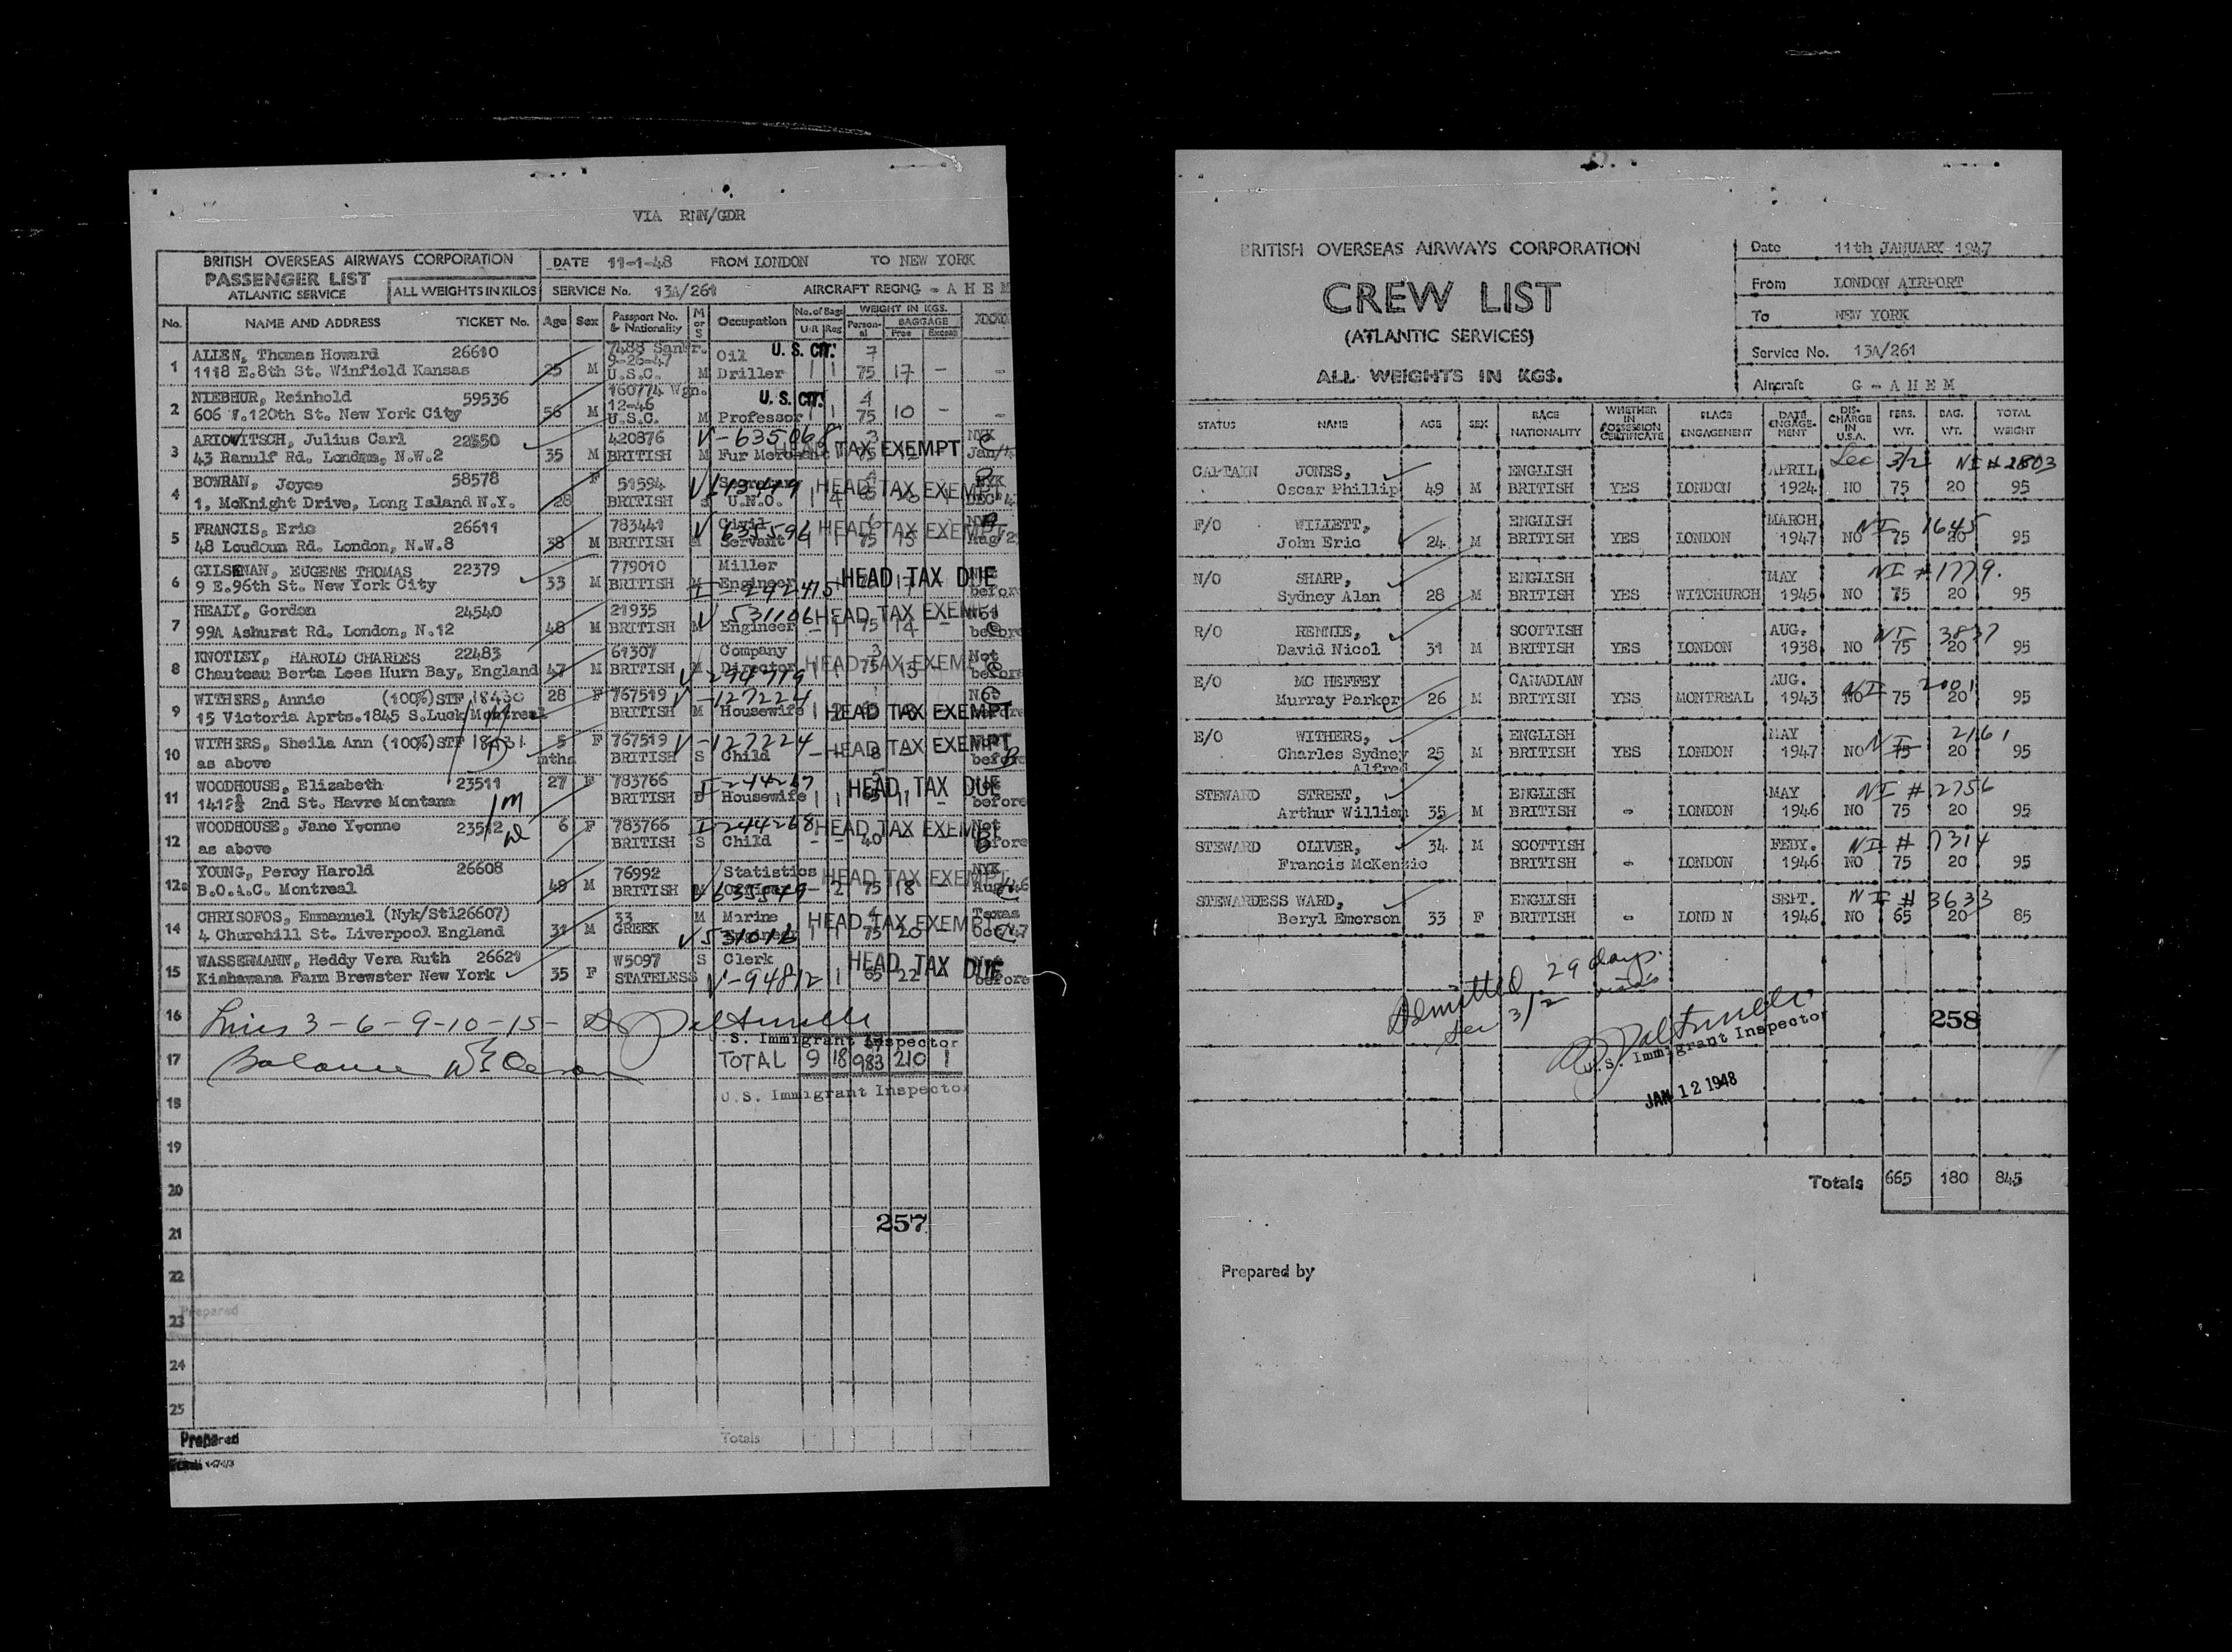 VIA RNN/GDR
BRITISH OVERSEAS AIRWAYS CORPORATION
PASSENGER LIST
ATLANTIC SERVICE
ALL WEIGHTS IN KILOS
DATE 11-1-48 FROM LONDON TO NEW YORK
SERVICE No. 13A/261 AIRCRAFT REGN G - A H E M
No. NAME AND ADDRESS TICKET No. Age Sex Passport No. & Nationality M or S Occupation No. of Bags U.R Reg WEIGHT IN KGS. Personal BAGGAGE Free Excess
1 ALLEN, Thomas Howard 26610 25 M 7488 9-26-47 U.S.C. M Oil Driller U. S. CIT. 1 1 7 75 17 - -
1118 E.8th St. Winfield Kansas
2 NIEBHUR, Reinhold 59536 56 M 160774 Wgn. 12-46 U.S.C. M Professor U. S. CIT. 1 1 4 75 10 - -
606 W.120th St. New York City
3 ARIOVITSCH, Julius Carl 22550 35 M 420876 BRITISH M Fur Merchant V-635068 HEAD TAX EXEMPT NYK
43 Ranulf Rd. London, N.W.2
4 BOWRAN, Joyce 58578 28 F 51594 BRITISH S Secretary U.N.O. HEAD TAX EXEMPT NYK
1, McKnight Drive, Long Island N.Y.
5 FRANCIS, Eric 26611 38 M 783441 BRITISH M Civil Servant V 635596 HEAD TAX EXEMPT
48 Loudoun Rd. London, N.W.8
6 GILSENAN, EUGENE THOMAS 22379 33 M 779010 BRITISH M Miller Engineer I-242475 HEAD TAX DUE before
9 E.96th St. New York City
7 HEALY, Gordon 24540 48 M 21935 BRITISH M Engineer V 531106 HEAD TAX EXEMPT - 1 75 14 - before
99A Ashurst Rd. London, N.12
8 KNOTLEY, HAROLD CHARLES 22483 47 M 61307 BRITISH M Company Director V-294779 HEAD TAX EXEMPT Not before
Chauteau Berta Lees Hurn Bay, England
9 WITHERS, Annie (100%)STF 18430 28 F 767519 BRITISH M Housewife V-127224 HEAD TAX EXEMPT Not
15 Victoria Aprts.1845 S.Luck Montreal
10 WITHERS, Sheila Ann (100%)STF 18431 5 mths F 767519 BRITISH S Child V-127224 HEAD TAX EXEMPT 8 before
as above
11 WOODHOUSE, Elizabeth 23511 27 F 783766 BRITISH Housewife I-244267 HEAD TAX DUE 1 1 65 11 - before
1412½ 2nd St. Havre Montana
12 WOODHOUSE, Jane Yvonne 23512 6 F 783766 BRITISH S Child I 244268 HEAD TAX EXEMPT - - 40 Not before
as above
12a YOUNG, Percy Harold 26608 49 M 76992 BRITISH M Statistics V635549 HEAD TAX EXEMPT - 2 75 18 NYK
B.O.A.C. Montreal
14 CHRISOFOS, Emmanuel (Nyk/Stl26607) 31 M 33 GREEK M Marine Engineer V531016 HEAD TAX EXEMPT 1 1 4 75 20 Texas
4 Churchill St. Liverpool England
15 WASSERMANN, Heddy Vera Ruth 26621 35 F W5097 STATELESS S Clerk V-94812 HEAD TAX DUE 1 65 22 before
Kishawana Farm Brewster New York
16 Lines 3-6-9-10-15-
U.S. Immigrant Inspector
17 Balance
TOTAL 9 18 983 210 1
U.S. Immigrant Inspector
18
19
20
21
257
22
23 Prepared
24
25
Prepared
Totals
BRITISH OVERSEAS AIRWAYS CORPORATION
CREW LIST
(ATLANTIC SERVICES)
ALL WEIGHTS IN KGS.
Date 11th JANUARY 1947
From LONDON AIRPORT
To NEW YORK
Service No. 13A/261
Aircraft G - A H E M
STATUS NAME AGE SEX RACE NATIONALITY WHETHER IN POSSESSION CERTIFICATE PLACE ENGAGEMENT DATE ENGAGEMENT DISCHARGE IN U.S.A. PERS. WT. BAG. WT. TOTAL WEIGHT
Sec 3/2 NI # 2803
CAPTAIN JONES, Oscar Phillip 49 M ENGLISH BRITISH YES LONDON APRIL 1924 NO 75 20 95
NI 1645
F/O WILLETT, John Eric 24 M ENGLISH BRITISH YES LONDON MARCH 1947 NO 75 20 95
NI # 1779.
N/O SHARP, Sydney Alan 28 M ENGLISH BRITISH YES WITCHURCH MAY 1945 NO 75 20 95
NI 3837
R/O RENNIE, David Nicol 31 M SCOTTISH BRITISH YES LONDON AUG. 1938 NO 75 20 95
NI 2001
E/O MC HEFFEY Murray Parker 26 M CANADIAN BRITISH YES MONTREAL AUG. 1943 NO 75 20 95
NI 2161
E/O WITHERS, Charles Sydney Alfred 25 M ENGLISH BRITISH YES LONDON MAY 1947 NO 75 20 95
NI # 2756
STEWARD STREET, Arthur William 35 M ENGLISH BRITISH - LONDON MAY 1946 NO 75 20 95
NI # 7314
STEWARD OLIVER, Francis McKenzie 34 M SCOTTISH BRITISH - LONDON FEBY. 1946 NO 75 20 95
NI # 3633
STEWARDESS WARD, Beryl Emerson 33 F ENGLISH BRITISH - LOND N SEPT. 1946 NO 65 20 85
Admitted 29 days.
Sec 3/2
U.S. Immigrant Inspector
258
JAN 12 1948
Totals 665 180 845
Prepared by